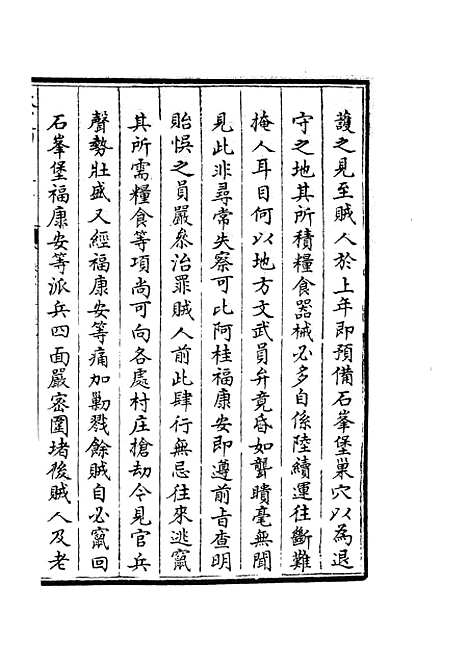 護之見至賊人於上年即預備石峯堡巢穴以為退
守之地其所積糧食器械必多自係陸續運往斷難
掩人耳目何以地方文武員弁竟昏如聾聵毫無聞
見此非尋常失察可比阿桂福康安即遵前㫖查明
貽悞之員嚴叅治罪賊人前此肆行無忌往來逃竄
其所需糧食等項尚可向各處村庄搶劫今見官兵
聲勢壯盛又經福康安等痛加勦戮餘賊自必竄回
石峯堡福康安等派兵四面嚴密圍堵後賊人及老